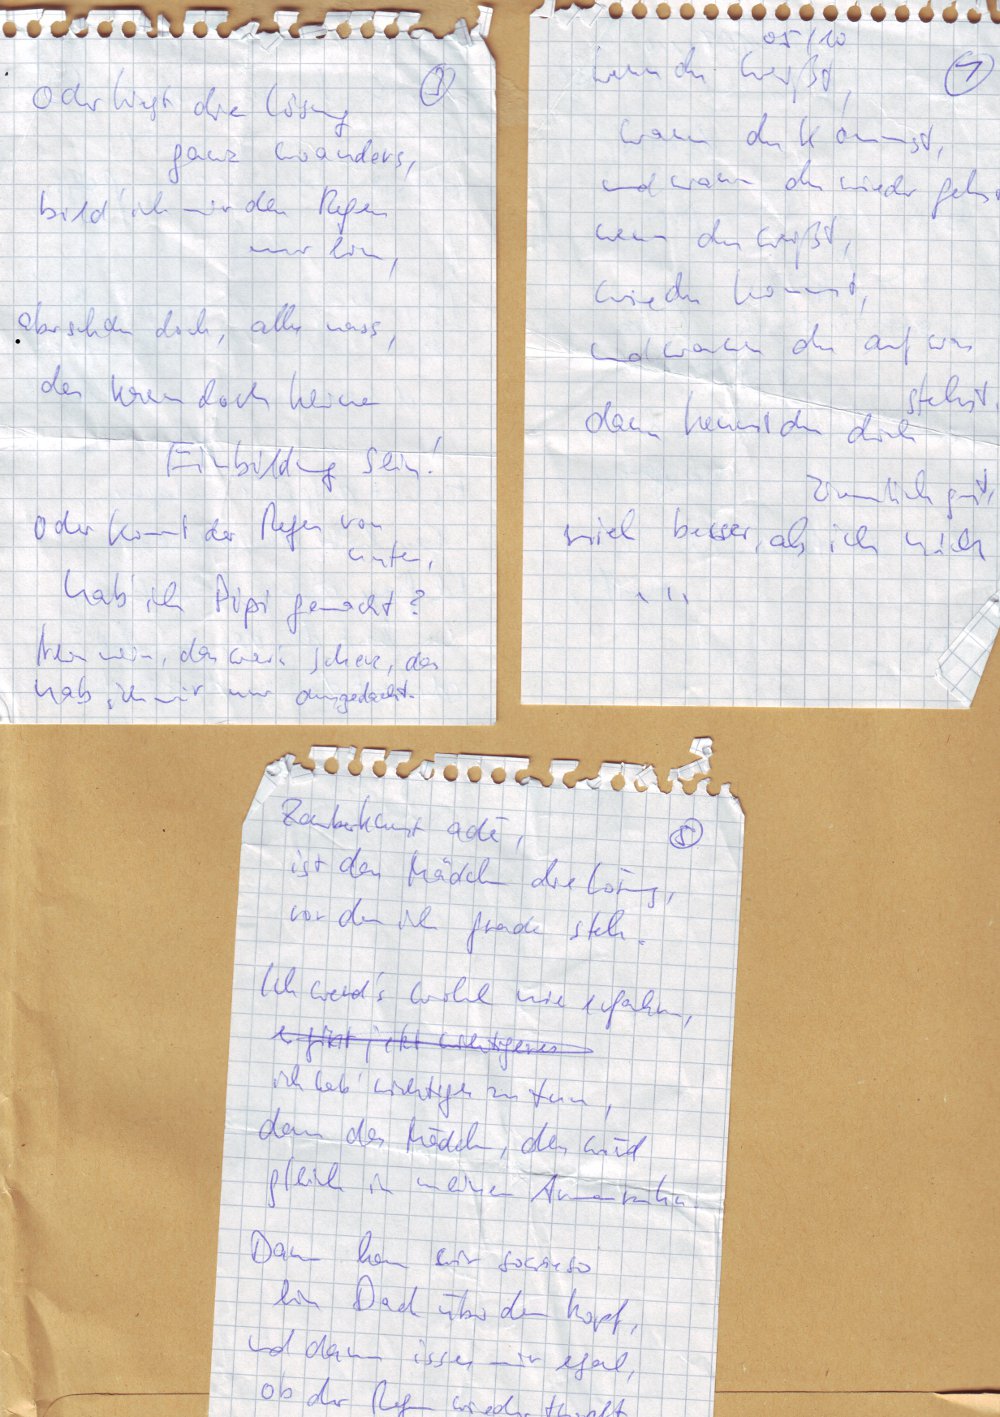 3
Oder liegt die Lösung
ganz woanders,
bild' ich mir den Regen
nur ein,
aber sieh doch, alles nass,
das kann doch keine
Einbildung sein!
Oder kommt der Regen von
unten,
hab' ich Pipi gemacht?
Nein nein, das war'n Scherz, das
hab' ich mir nur ausgedacht.
05/10
1
wenn du weißt,
wann du kommst,
und wann du wieder gehst
wenn du weißt,
wie du kommst,
und wann du auf was
stehst,
dann kennst du dich
ziemlich gut,
viel besser, als ich mich
....
5
Zauberkunst adé,
ist das Mädchen die Lösung,
vor der ich grade steh.
Ich werd's wohl nie erfahren,
es gibt jetzt wichtigeres
ich hab' wichtiges zu tun,
denn das Mädchen, das wird
gleich in meinen Armen
Dann ham wir sowieso
ein Dach über dem Kopf,
und dann isses mir egal,
ob der Regen wieder tropft